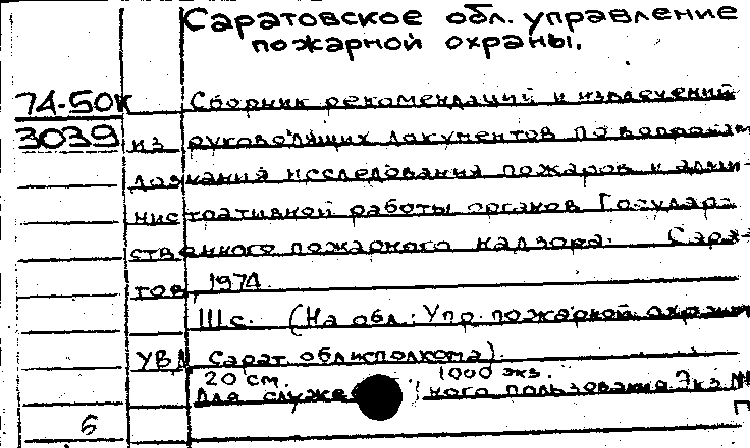 Саратовское обл. управление
пожарной охраны.
74-50к
3039
Сборник рекомендаций и извлечений
из руководящих документов по вопросам
дознания исследования пожаров и адми-
нистративной работы органов Государ-
ственного пожарного надзора. Сара-
тов, 1974.
111 с. (На обл.: Упр. пожарной охраны
УВД Сарат. облисполкома).
20 см. 1000 экз.
Для служебного пользования Экз. №
6